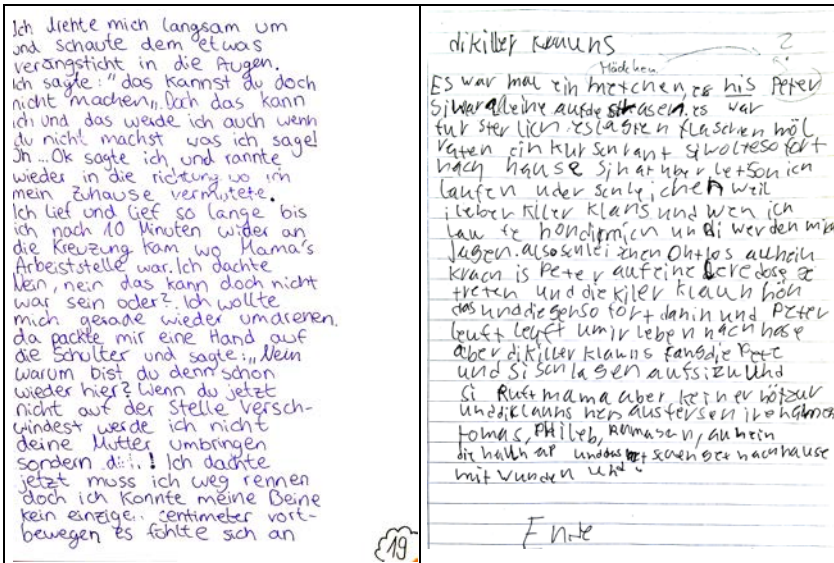 Ich drehte mich langsam um
und schaute dem etwas
verängsticht in die Augen.
Ich sagte:"das kannst du doch
nicht machen„. Doch das kann
ich und das werde ich auch wenn
du nicht machst was ich sage!
Ih ...Ok sagte ich und rannte
wieder in die richtung wo ich
mein zuhause vermutete.
Ich lief und lief so lange bis
ich nach 10 Minuten wider an
die Kreuzung kam wo Mama's
Arbeiststelle war. Ich dachte
Nein, nein das kann doch nicht
war sein oder?. Ich wollte
mich gerade wieder umdrehen.
da packte mir eine Hand auf
die Schulter und sagte:„Nein
warum bist du denn schon
wieder hier? Wenn du jetzt
nicht auf der Stelle versch-
windest werde ich nicht
deine Mutter umbringen
sondern di...! Ich dachte
jetzt muss ich weg rennen
doch ich konnte meine Beine
kein einzige.. centimeter vort-
bewegen es fühlte sich an
19
dikiller klauns
?
Mädchen
Es war mal ein metchen, es his Peter
Si war alleine aufde strasen. es war
fur ster lich. es lagen flaschen
ein kur sen rant si wolte so fort
nach hause
laufen uder schleichen weil
killer klans und wen ich
lau fe werden mich
Jagen. also
krach is Peter auf eine dose
treten und die kiler klaun hön
das und die gen so fort dahin und Peter
leuft leuft um ir leben nach hase
aber dikiller klauns fang die Pete
und Si schlagen auf si zu und
si Ruft mama aber keiner hötzur
und diklauns
tomas, Phileb,
nachhause
mit wunden und
Ende